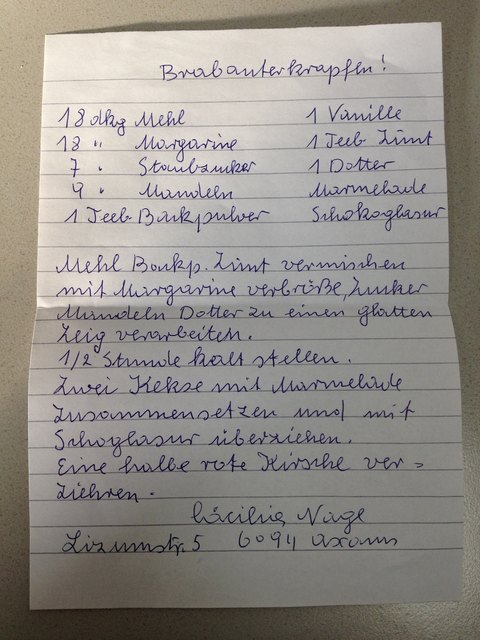 Brabanterkrapfen!
18 dkg Mehl 1 Vanille
18 " Margarine 1 Teeb Zimt
7 " Staubzucker 1 Dotter
9 " Mandeln Marmelade
1 Teeb Backpulver Schokoglasur
Mehl Backp. Zimt vermischen
mit Margarine verbröße, Zucker
Mandeln Dotter zu einen glatten
Zeig verarbeiten.
1/2 Stunde kalt stellen.
Zwei Kekse mit Marmelade
zusammensetzen und mit
Schoglasur überziehen.
Eine halbe rote Kirsche ver=
ziehren.
Cäcilia Nagl
Lizumstr. 5 6094 Axams